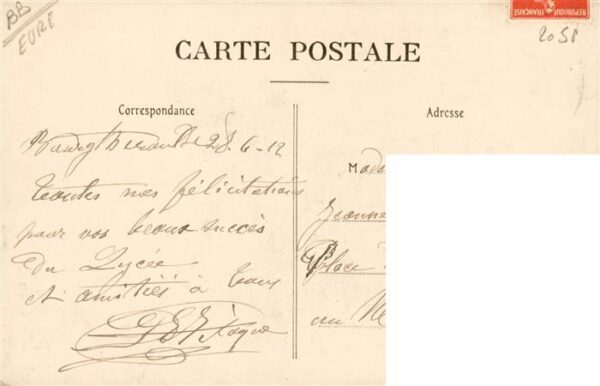 BB
EURE
REPUBLIQUE FRANÇAISE
2051
CARTE POSTALE
Correspondance
Adresse
Bourgtheroulde 28.6-12
toutes mes félicitations
pour vos beaux succès
du Lycée
et amitiés à tous
Mada
Jeanne
Place
au